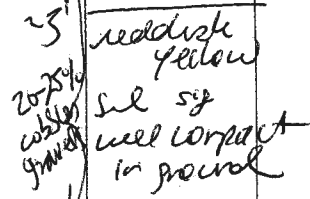 ~5'
20-25%
cobbles
gravels
reddish
yellow
well compact
in ground